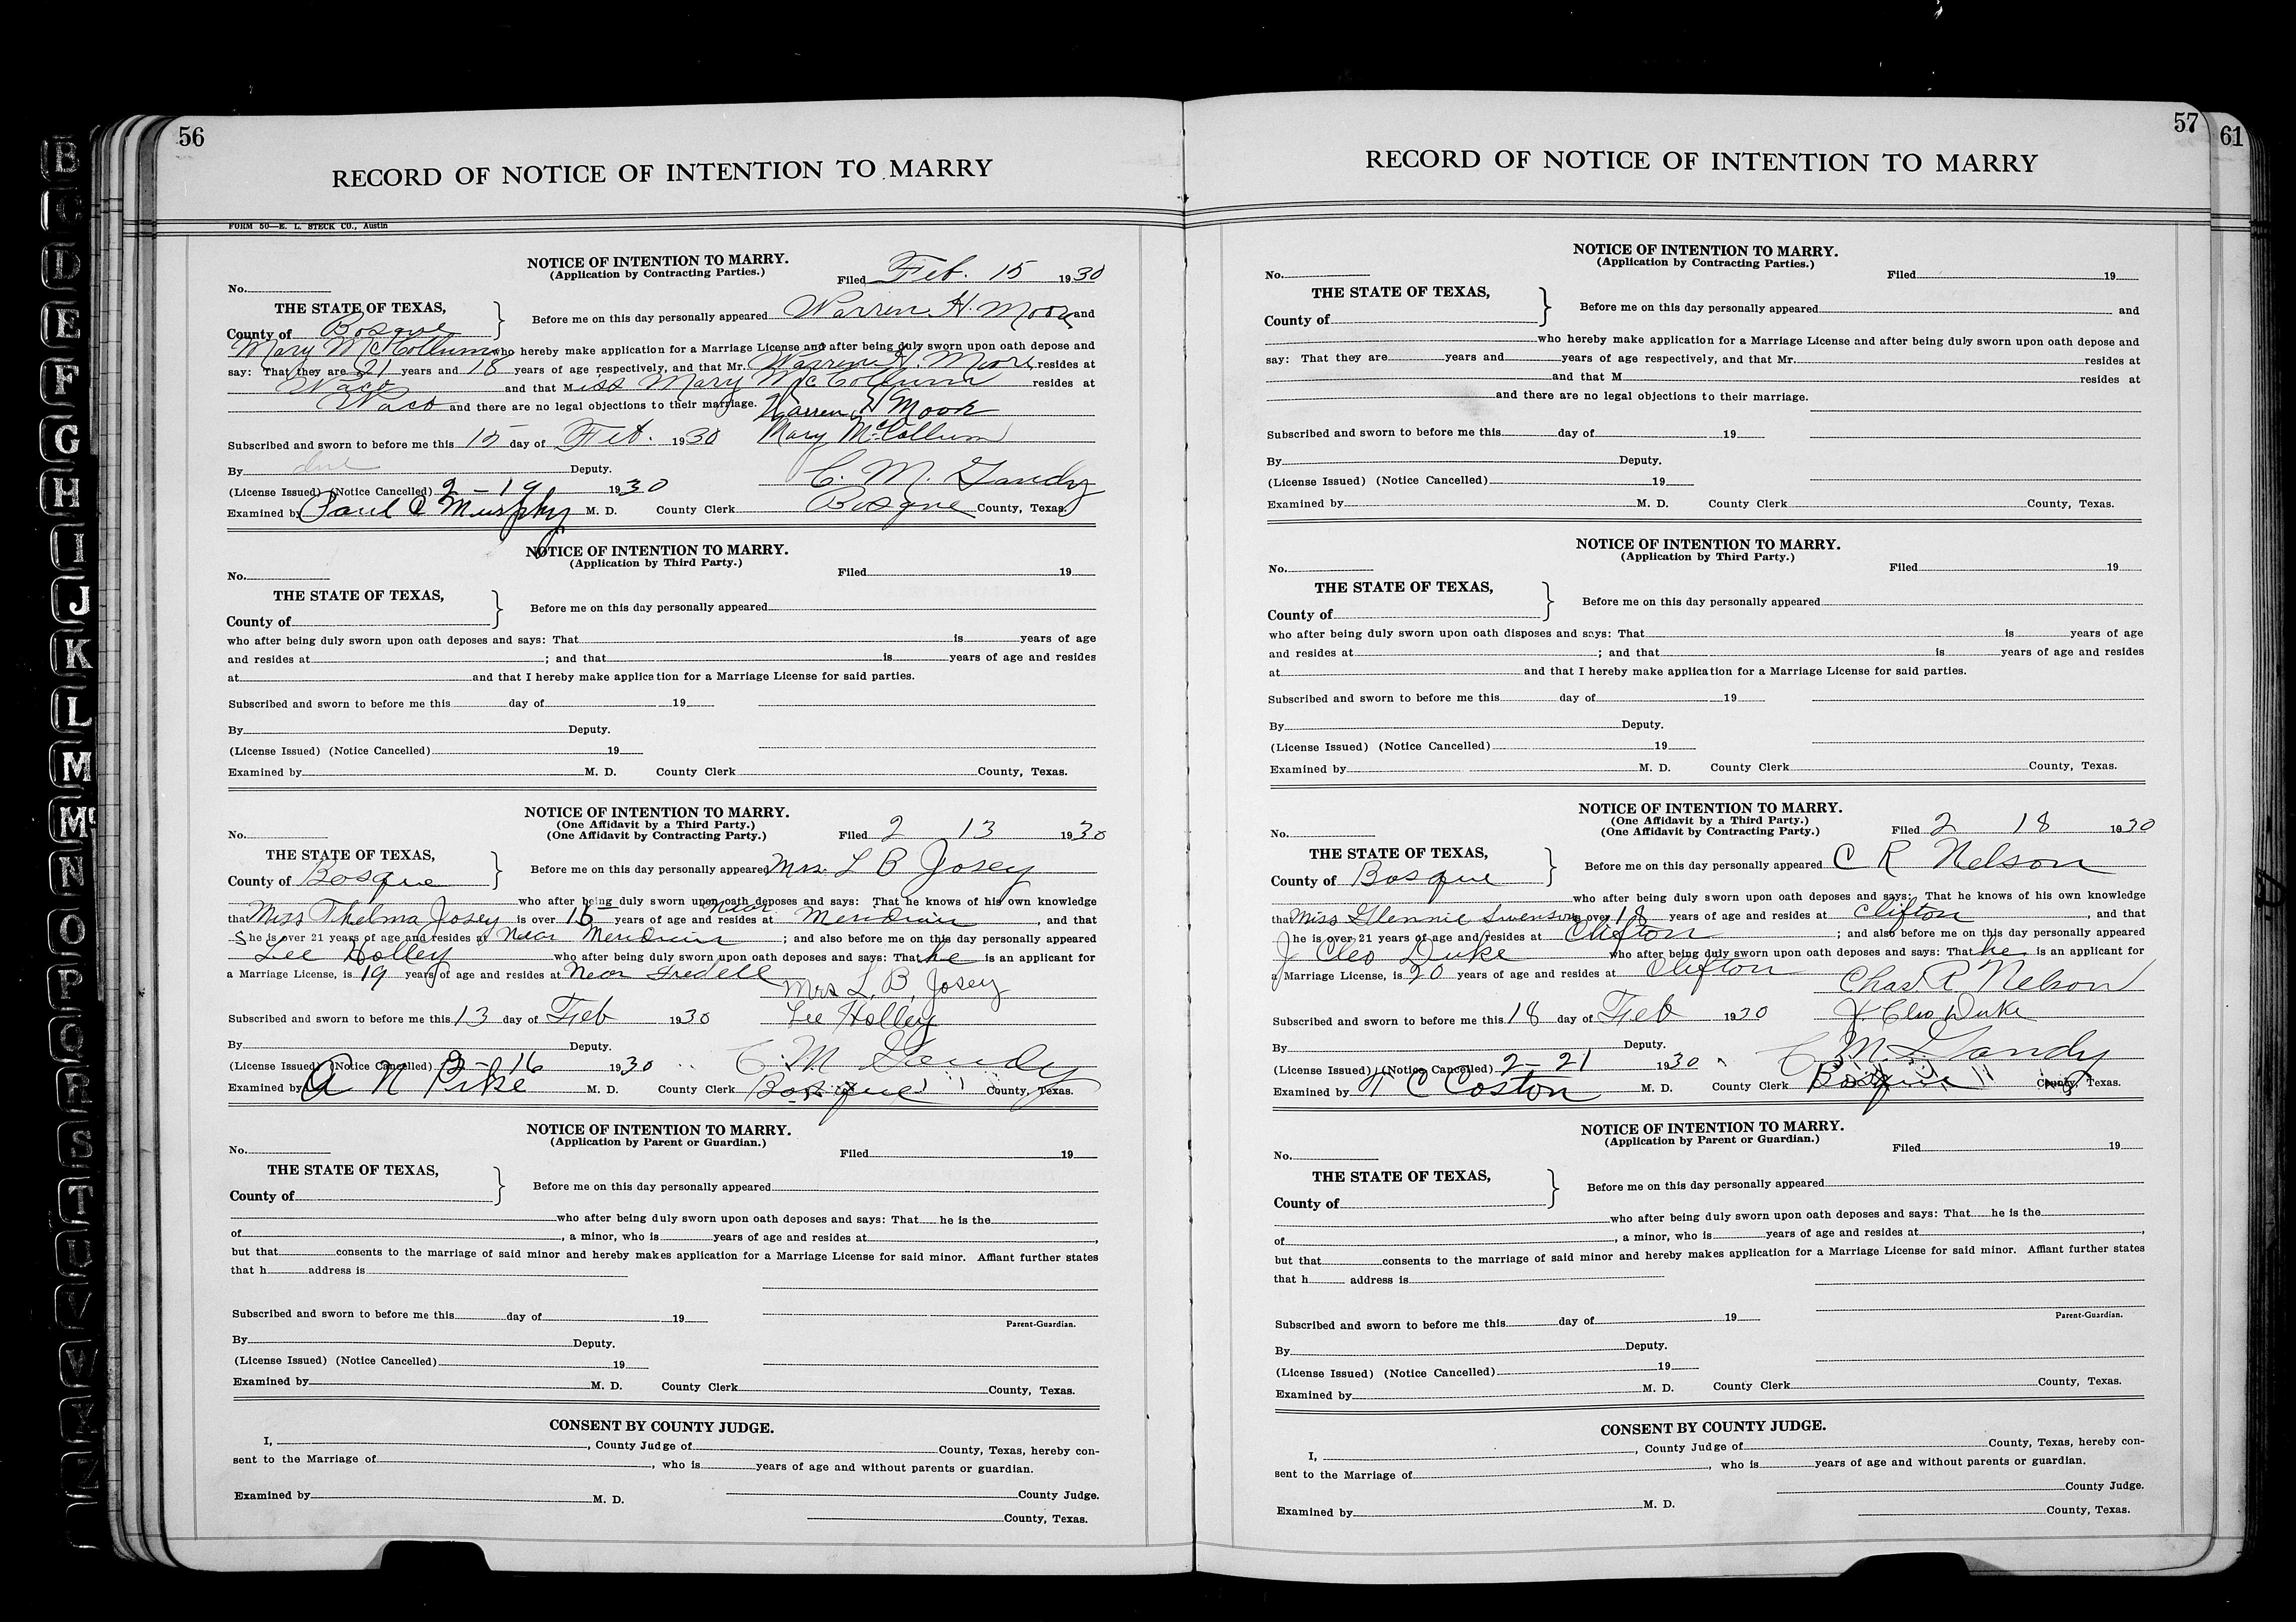 56
RECORD OF NOTICE OF INTENTION TO MARRY
FORM 50—E. L. STECK CO., Austin
NOTICE OF INTENTION TO MARRY.
(Application by Contracting Parties.)
No. Filed Feb. 15 1930
THE STATE OF TEXAS,
County of Bosque
Before me on this day personally appeared Warren H. Moore and
Mary McCollum who hereby make application for a Marriage License and after being duly sworn upon oath depose and
say: That they are 21 years and 18 years of age respectively, and that Mr. Warren H. Moore resides at
Waco and that Miss Mary McCollum resides at
Waco and there are no legal objections to their marriage. Warren H Moore
Subscribed and sworn to before me this 15 day of Feb. 1930 Mary McCollum
By Deputy.
(License Issued) (Notice Cancelled) 2-19 1930 C. M. Gandy
Examined by Paul C Murphy M. D. County Clerk Bosque County, Texas.
NOTICE OF INTENTION TO MARRY.
(Application by Third Party.)
No. Filed 19
THE STATE OF TEXAS,
County of
Before me on this day personally appeared
who after being duly sworn upon oath deposes and says: That is years of age
and resides at ; and that is years of age and resides
at and that I hereby make application for a Marriage License for said parties.
Subscribed and sworn to before me this day of 19
By Deputy.
(License Issued) (Notice Cancelled) 19
Examined by M. D. County Clerk County, Texas.
NOTICE OF INTENTION TO MARRY.
(One Affidavit by a Third Party.)
(One Affidavit by Contracting Party.)
No. Filed 2 13 1930
THE STATE OF TEXAS,
County of Bosque
Before me on this day personally appeared Mrs. L B Josey
who after being duly sworn upon oath deposes and says: That he knows of his own knowledge
that Miss Thelma Josey is over years of age and resides at near Meridian, and that
She is over 21 years of age and resides at Near Meridian ; and also before me on this day personally appeared
Lee Holley who after being duly sworn upon oath deposes and says: That he is an applicant for
a Marriage License, is 19 years of age and resides at Near Iredell
Mrs L. B. Josey
Subscribed and sworn to before me this 13 day of Feb 1930 Lee Holley
By Deputy.
(License Issued) (Notice Cancelled) 2-16 1930 C. M Gandy
Examined by A N Pike M. D. County Clerk Bosque County, Texas.
NOTICE OF INTENTION TO MARRY.
(Application by Parent or Guardian.)
No. Filed 19
THE STATE OF TEXAS,
County of
Before me on this day personally appeared
who after being duly sworn upon oath deposes and says: That he is the
of , a minor, who is years of age and resides at ,
but that consents to the marriage of said minor and hereby makes application for a Marriage License for said minor. Affiant further states
that h address is
Subscribed and sworn to before me this day of 19
Parent-Guardian.
By Deputy.
(License Issued) (Notice Cancelled) 19
Examined by M. D. County Clerk County, Texas.
CONSENT BY COUNTY JUDGE.
I, , County Judge of County, Texas, hereby con-
sent to the Marriage of , who is years of age and without parents or guardian.
Examined by M. D. County Judge.
County, Texas.
57
61
RECORD OF NOTICE OF INTENTION TO MARRY
NOTICE OF INTENTION TO MARRY.
(Application by Contracting Parties.)
No. Filed 19
THE STATE OF TEXAS,
County of
Before me on this day personally appeared and
who hereby make application for a Marriage License and after being duly sworn upon oath depose and
say: That they are years and years of age respectively, and that Mr. resides at
and that M resides at
and there are no legal objections to their marriage.
Subscribed and sworn to before me this day of 19
By Deputy.
(License Issued) (Notice Cancelled) 19
Examined by M. D. County Clerk County, Texas.
NOTICE OF INTENTION TO MARRY.
(Application by Third Party.)
No. Filed 19
THE STATE OF TEXAS,
County of
Before me on this day personally appeared
who after being duly sworn upon oath disposes and says: That is years of age
and resides at ; and that is years of age and resides
at and that I hereby make application for a Marriage License for said parties.
Subscribed and sworn to before me this day of 19
By Deputy.
(License Issued) (Notice Cancelled) 19
Examined by M. D. County Clerk County, Texas.
NOTICE OF INTENTION TO MARRY.
(One Affidavit by a Third Party.)
(One Affidavit by Contracting Party.)
No. Filed 2 18 1930
THE STATE OF TEXAS,
County of Bosque
Before me on this day personally appeared C R Nelson
who after being duly sworn upon oath deposes and says: That he knows of his own knowledge
that Miss Glennie Swenson is over 18 years of age and resides at Clifton, and that
he is over 21 years of age and resides at Clifton ; and also before me on this day personally appeared
J Cleo Duke who after being duly sworn upon oath deposes and says: That he is an applicant for
a Marriage License, is 20 years of age and resides at Clifton
Chas. R. Nelson
Subscribed and sworn to before me this 18 day of Feb 1930 J. Cleo Duke
By Deputy.
(License Issued) (Notice Cancelled) 2-21 1930 C. M. Gandy
Examined by T C Coston M. D. County Clerk Bosque County, Texas.
NOTICE OF INTENTION TO MARRY.
(Application by Parent or Guardian.)
No. Filed 19
THE STATE OF TEXAS,
County of
Before me on this day personally appeared
who after being duly sworn upon oath deposes and says: That he is the
of , a minor, who is years of age and resides at ,
but that consents to the marriage of said minor and hereby makes application for a Marriage License for said minor. Affiant further states
that h address is
Subscribed and sworn to before me this day of 19
Parent-Guardian.
By Deputy.
(License Issued) (Notice Cancelled) 19
Examined by M. D. County Clerk County, Texas.
CONSENT BY COUNTY JUDGE.
I, , County Judge of County, Texas, hereby con-
sent to the Marriage of , who is years of age and without parents or guardian.
County Judge.
Examined by M. D.
County, Texas.
B
C
D
E
F
G
H
I
J
K
L
M
Mc
N
O
P
Q
R
S
T
U
V
W